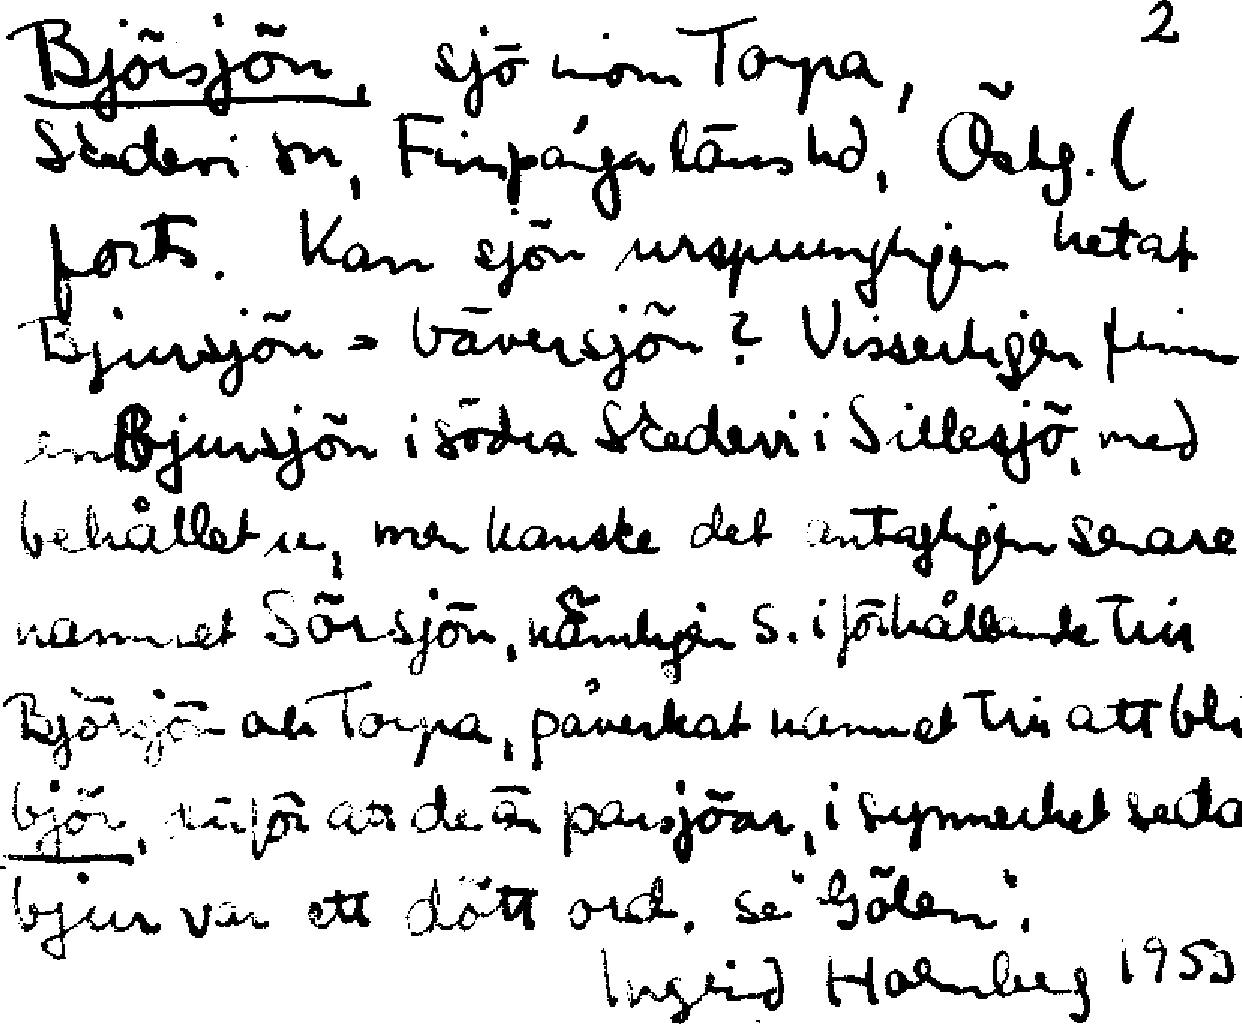 2
Björsjön, sjö inom Torpa,
Skedevi sn, Finspånga läns hd, Östg. (
forts. Kan sjön ursprungligen hetat
Bjursjön = bäversjön? Visserligen finns
en Bjursjön i södra Skedevi i Sillesjö, med
behållet u, men kanske det antagligen senare
namnet Sörsjön, nämligen S. i förhållande till
Björsjön och Torpa, påverkat namnet till att bli
björ, därför att de är parsjöar, i synnerhet seda
bjur var ett dött ord. se "Gölen".
Ingrid Holmberg 1953